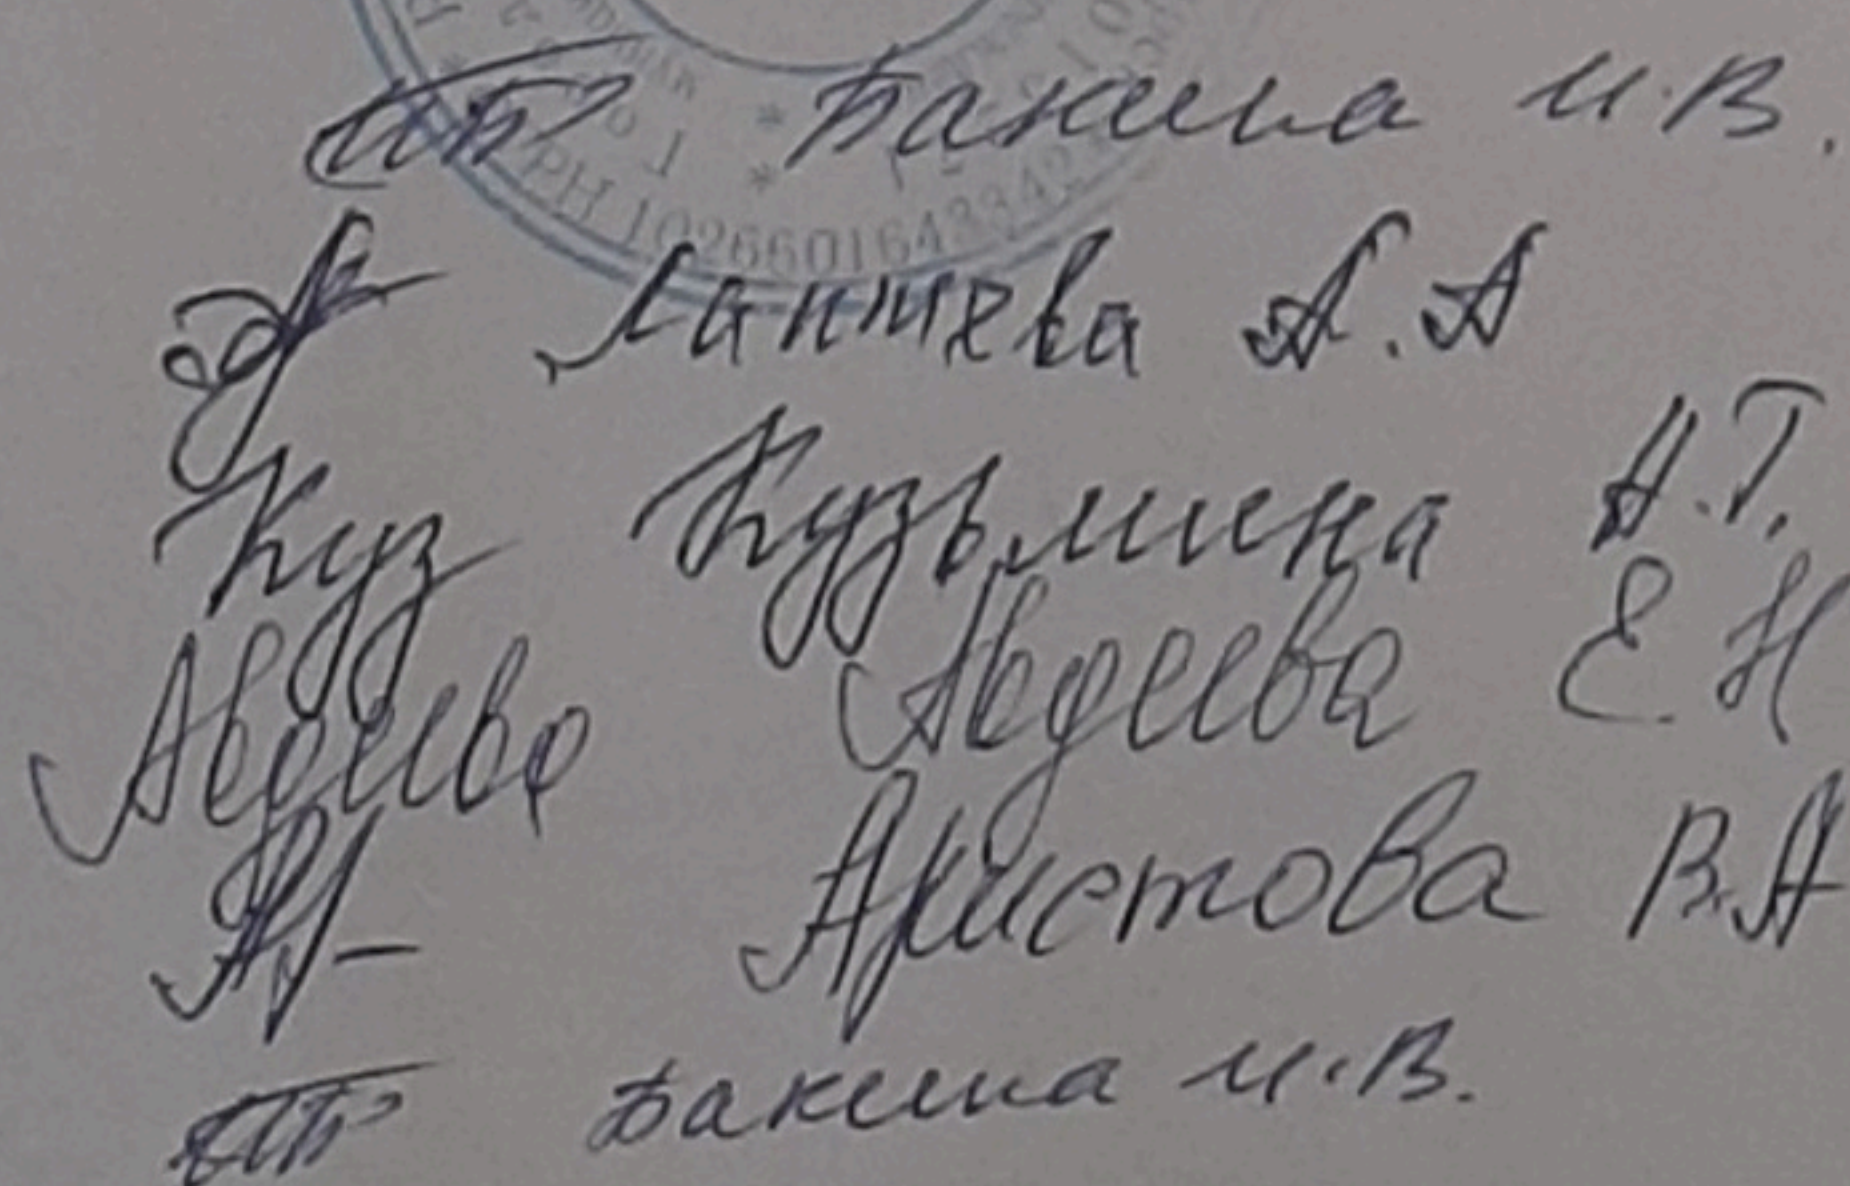 Бакина И.В.
РН 1026601643342
Лаптева А.А
Куз Кузьмина Н.Г.
Авдеева Авдеева Е Н
Аристова В.А
Бакина И.В.